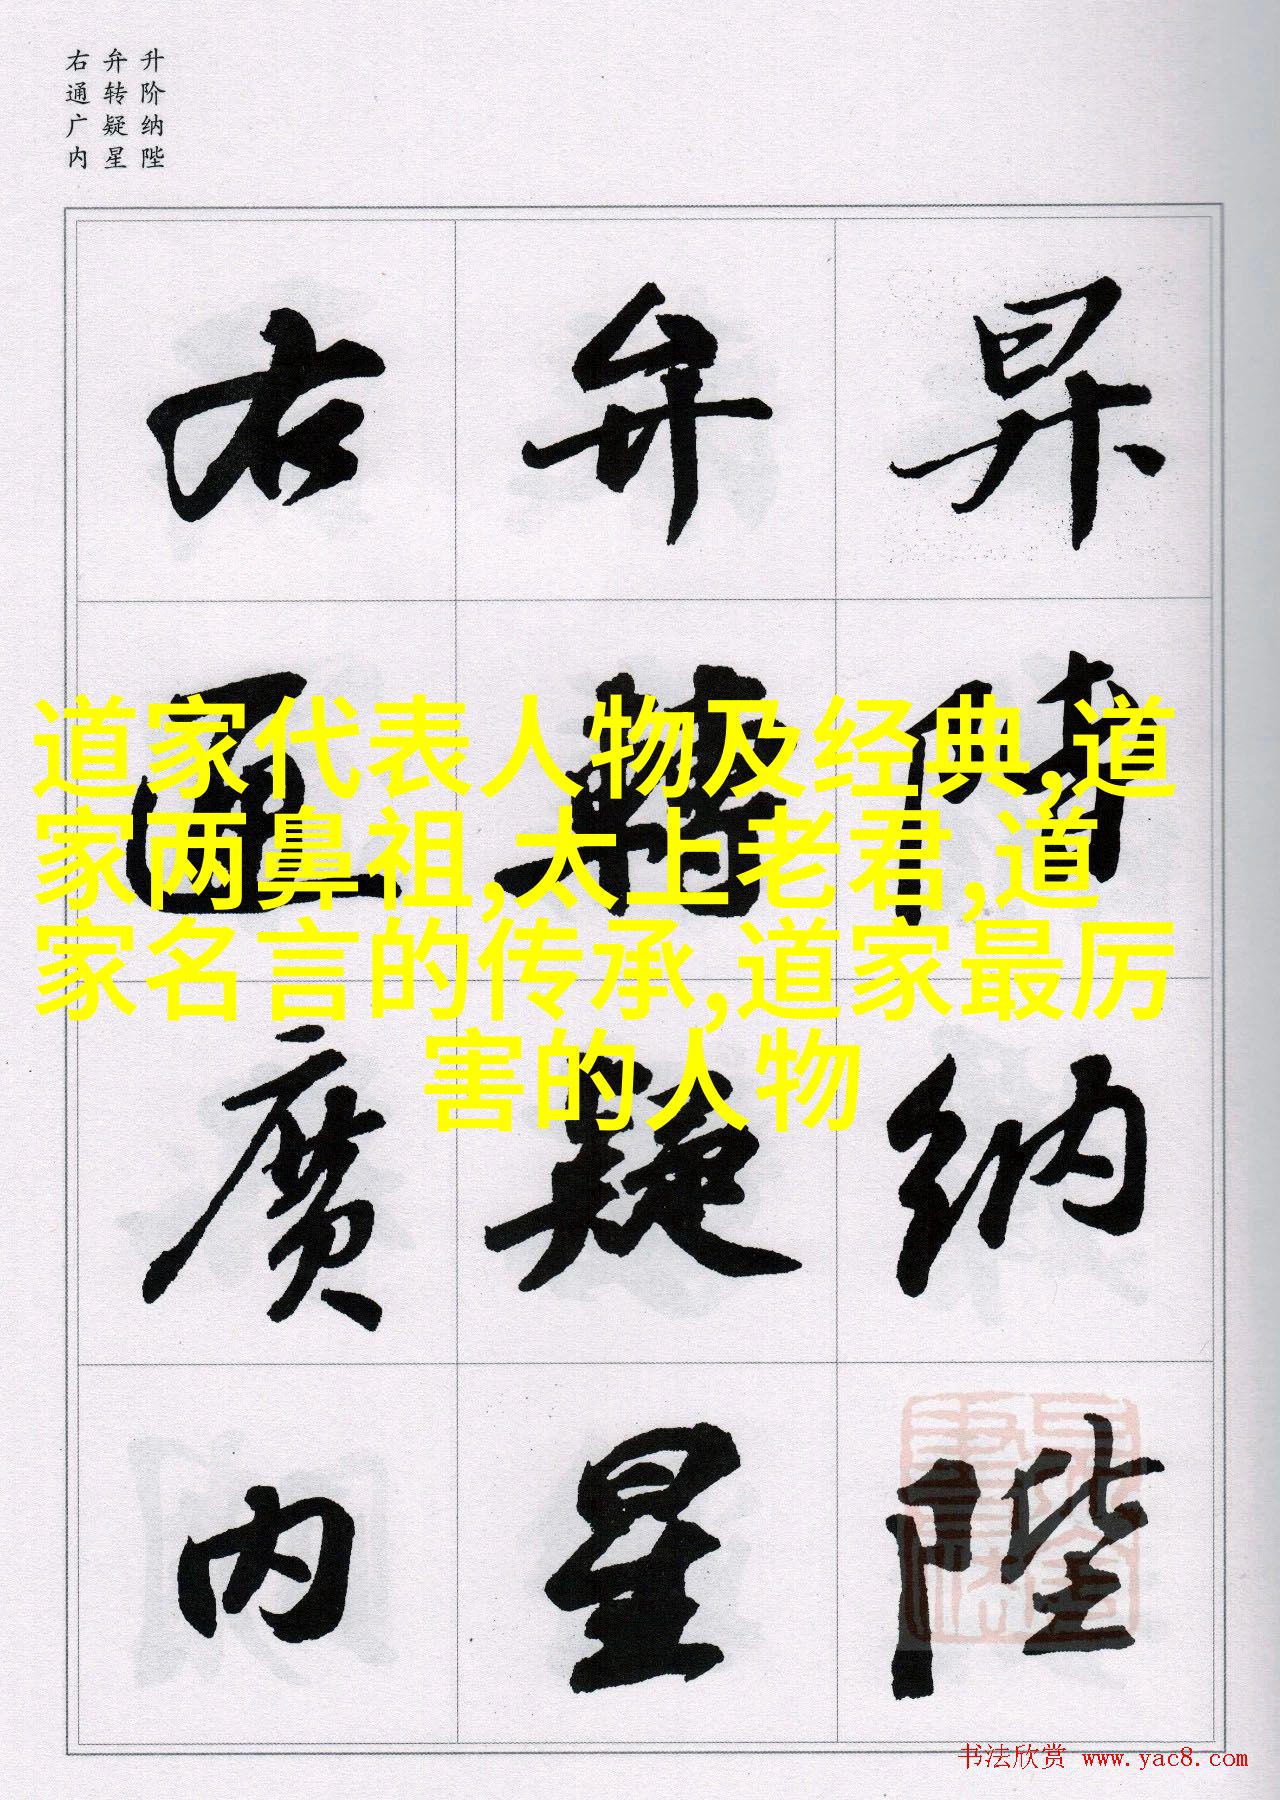 升阶纳陛
弁转疑星
右通广内
昇階納陛
弁轉疑星
右通廣内
道家代表人物及经典,道
家两鼻祖,太上老君,道
家名言的传承,道家最厉
害的人物
书法欣赏 www.yac8.com